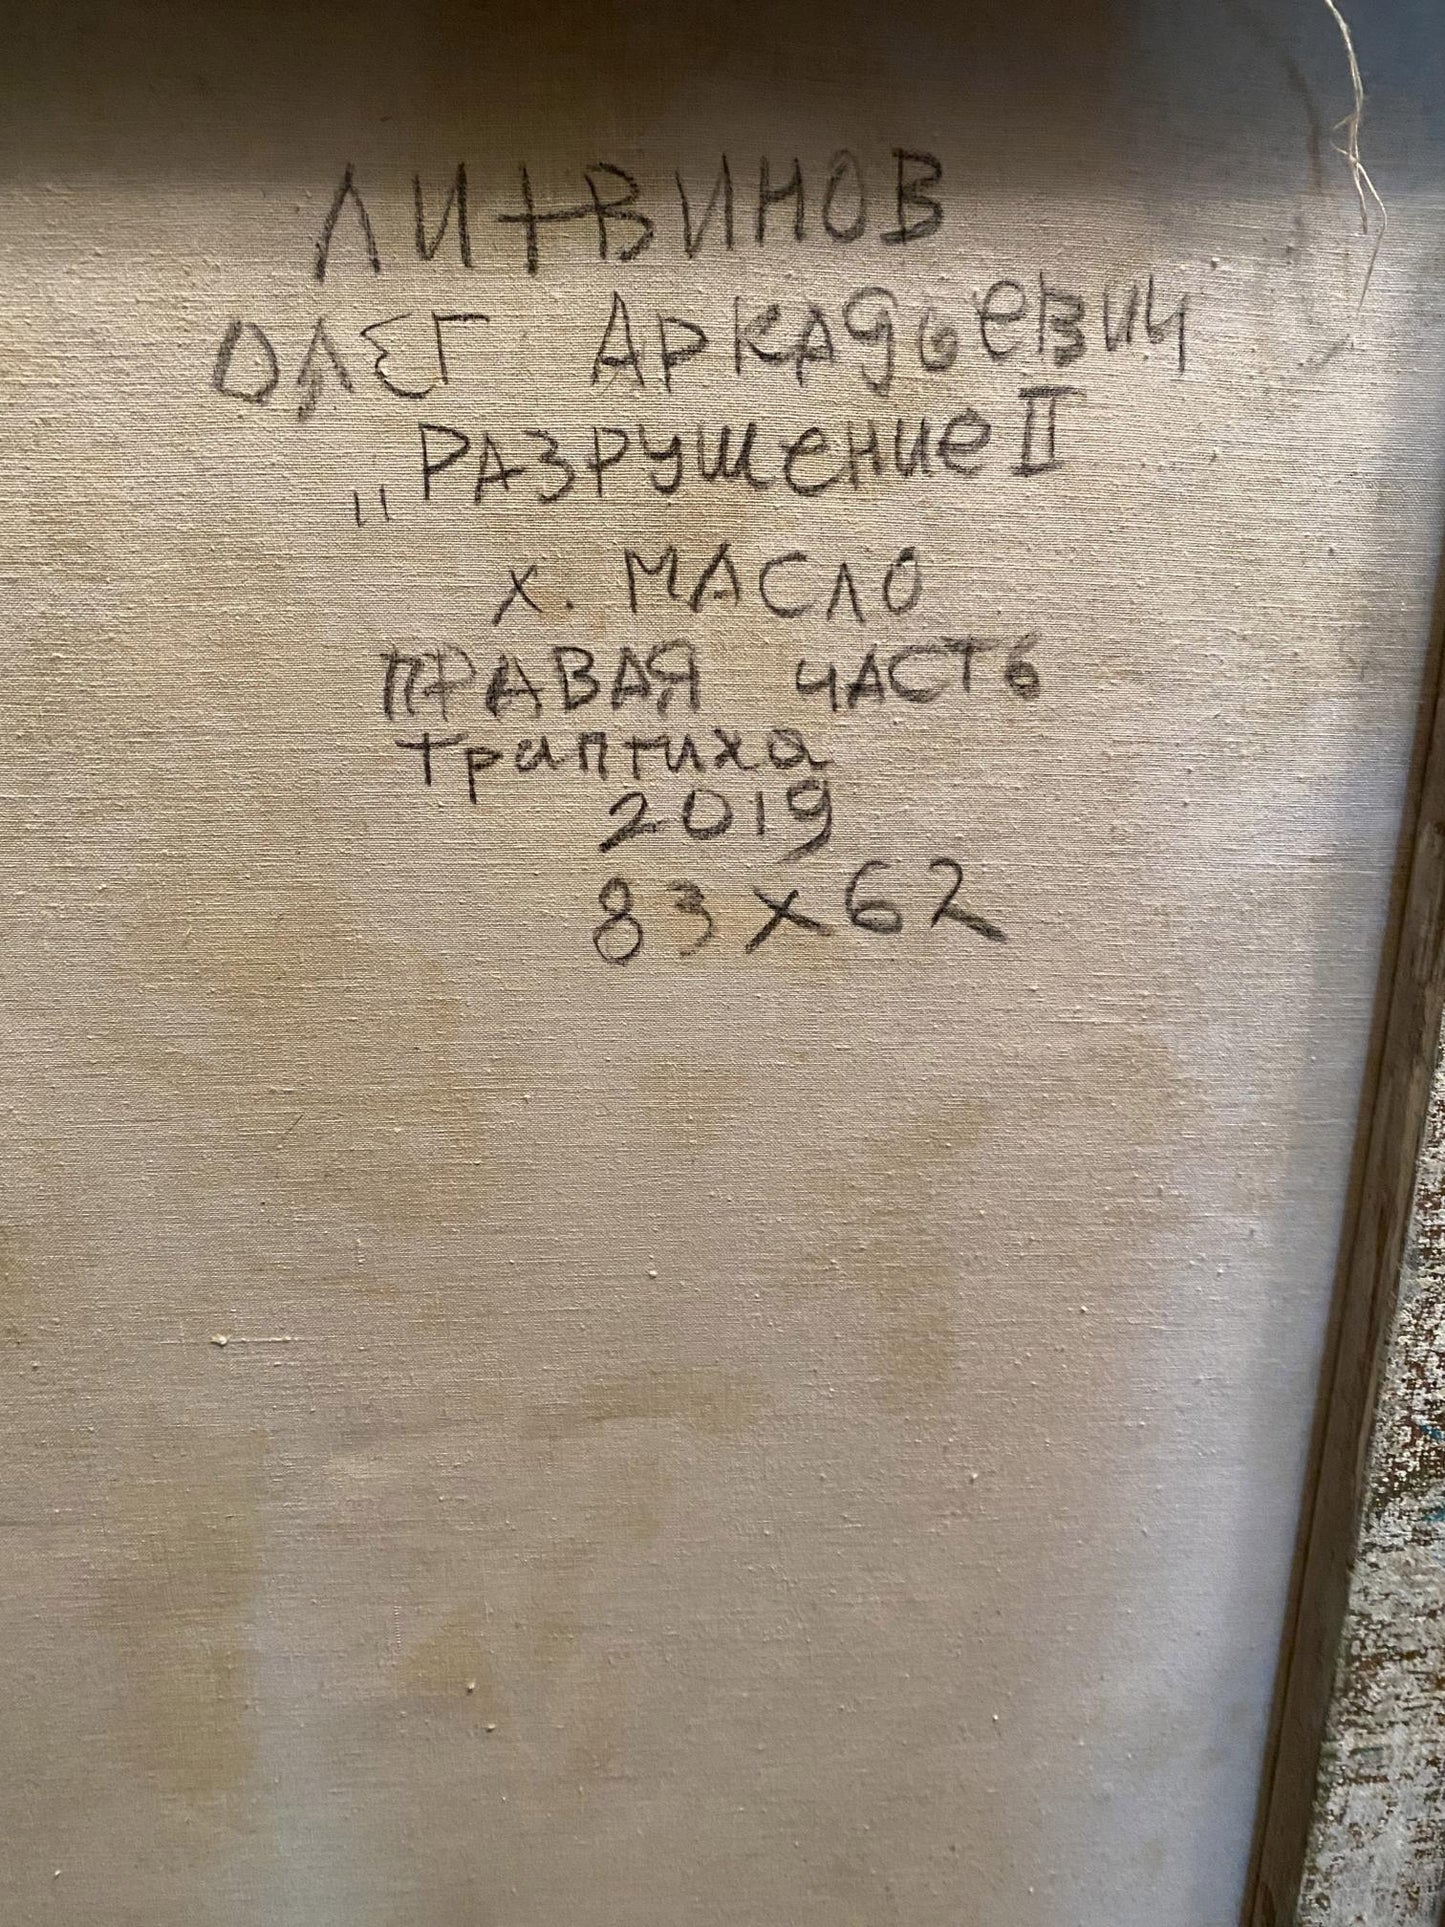 ЛИТВИНОВ
ОЛЕГ АРКАДЬЕВИЧ
„РАЗРУШЕНИЕ II
Х. МАСЛО
ПРАВАЯ ЧАСТЬ
триптиха
2019
83х62